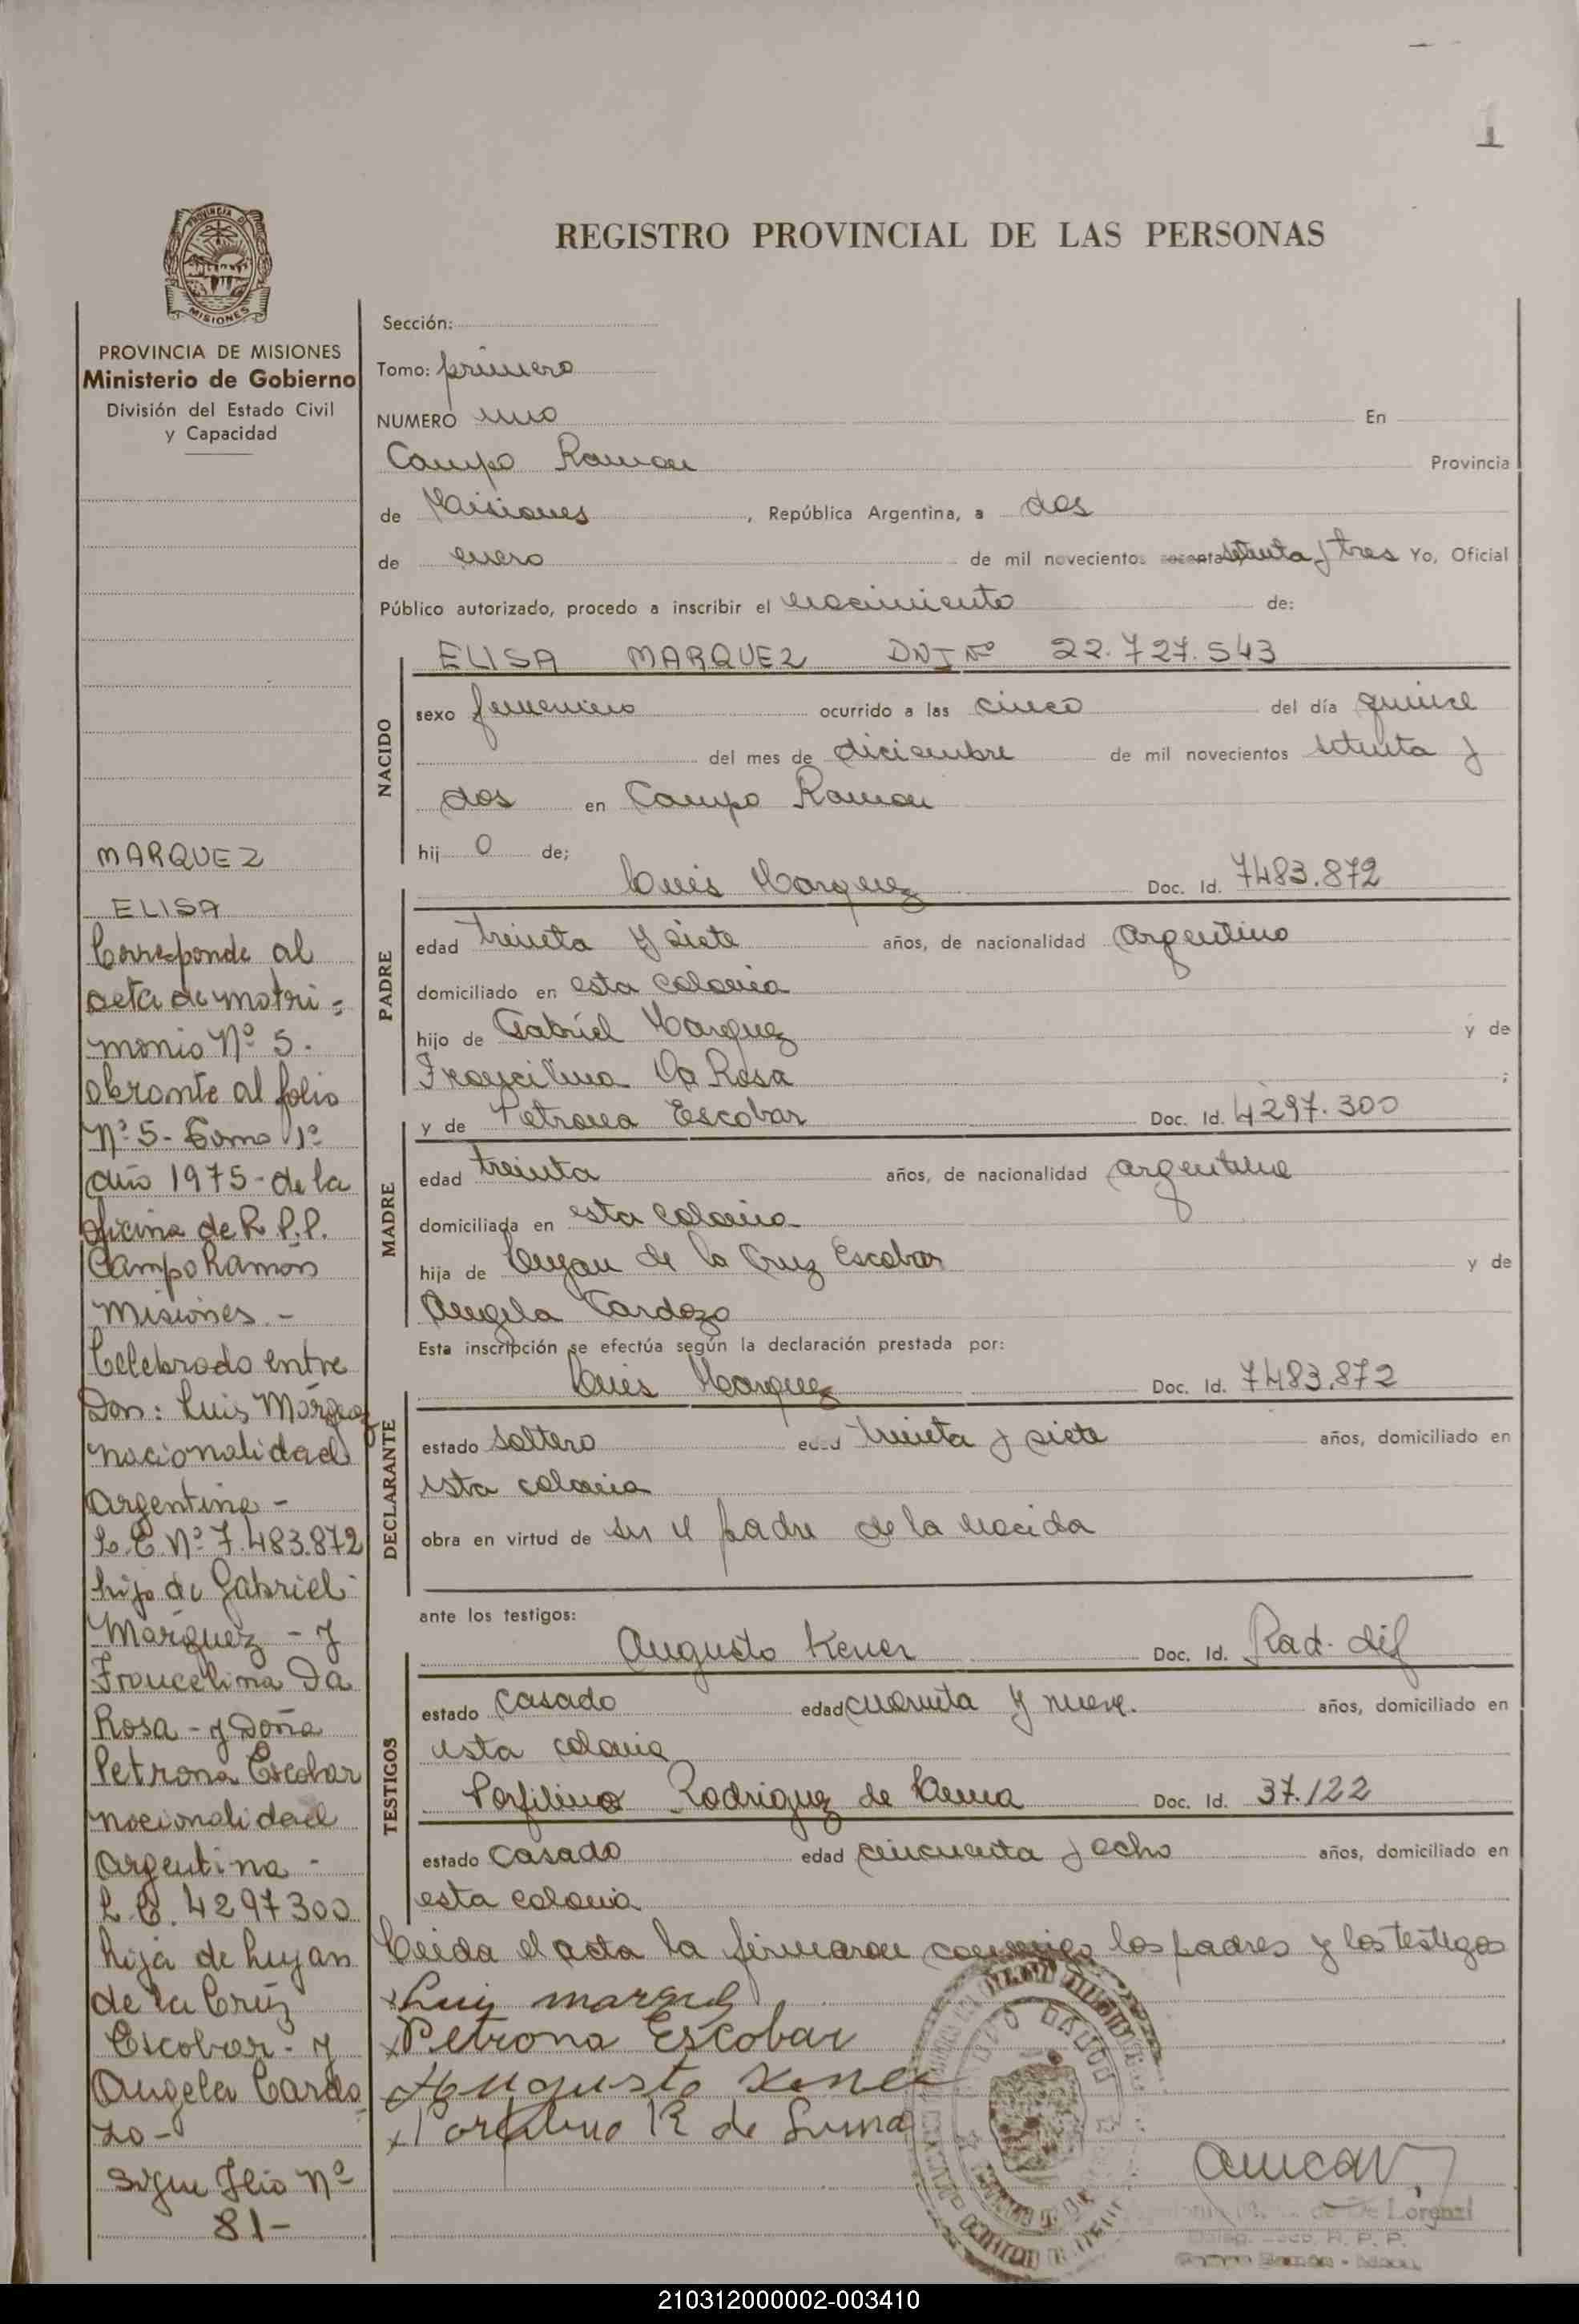 1
REGISTRO PROVINCIAL DE LAS PERSONAS
PROVINCIA DE
MISIONES
PROVINCIA DE MISIONES
Ministerio de Gobierno
División del Estado Civil
y Capacidad
MARQUEZ
ELISA
Corresponde al
acta de matri=
monio Nº 5.
obrante al folio
Nº 5- Tomo 1º
año 1975- de la
oficina de R.P.P.
Campo Ramón
Misiones.-
Celebrado entre
Don: Luis Márquez
nacionalidad
Argentina-
L.E. Nº 7.483.872
hijo de Gabriel
Márquez - y
Francelina Da
Rosa - y Doña
Petrona Escobar
nacionalidad
argentina-
L.C. 4297300
hija de Lujan
de la Cruz
Escobar- y
Angela Cardo
zo-
Sigue folio Nº
81-
Sección:
Tomo: primero
NUMERO uno En
Campo Ramon Provincia
de Misiones, República Argentina, a dos
de enero de mil novecientos sesenta setenta y tres Yo, Oficial
Público autorizado, procedo a inscribir el nacimiento de:
ELISA MARQUEZ DNI Nº 22.727.543
NACIDO
sexo femenino ocurrido a las cinco del día quince
del mes de diciembre de mil novecientos setenta y
dos en Campo Ramon
hij o de;
Luis Marquez Doc. Id. 7483.872
PADRE
edad treinta y siete años, de nacionalidad Argentino
domiciliado en esta colonia
hijo de Gabriel Marquez y de
Francilina Da Rosa ;
y de Petrona Escobar Doc. Id. 4297.300
MADRE
edad treinta años, de nacionalidad argentina
domiciliada en esta colonia
hija de Lujan de la Cruz Escobar y de
Angela Cardozo
Esta inscripción se efectúa según la declaración prestada por:
Luis Marquez Doc. Id. 7483.872
DECLARANTE
estado soltero edad treinta y siete años, domiciliado en
esta colonia
obra en virtud de ser el padre de la nacida
ante los testigos:
Augusto Kener Doc. Id. Rad. dif
TESTIGOS
estado casado edad cuarenta y nueve. años, domiciliado en
esta colonia
Porfilino Rodriguez de Lima Doc. Id. 37.122
estado casado edad cincuenta y ocho años, domiciliado en
esta colonia
Leida el acta la firmaron conmigo los padres y los testigos
Luis marquez
Petrona Escobar
Augusto Kener
R de Lima
De Lorenzi
R. P. P.
210312000002-003410